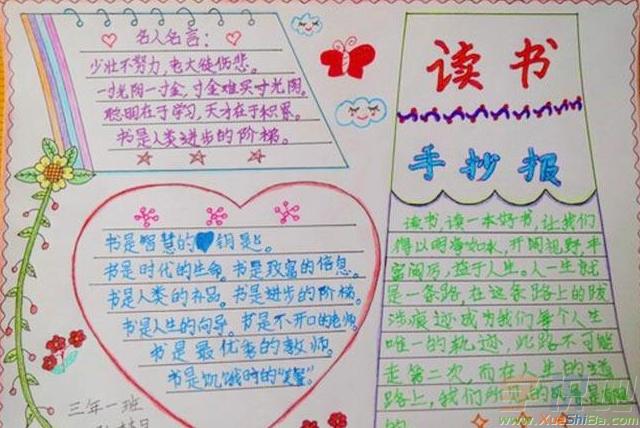 名人名言：
少壮不努力，老大徒伤悲。
一寸光阴一寸金，寸金难买寸光阴。
聪明在于学习，天才在于积累。
书是人类进步的阶梯。
读书
手抄报
书是智慧的钥匙。
书是时代的生命。书是致富的信息。
书是人类的补品。书是进步的阶梯。
书是人生的向导。书是不开口的老师。
书是最优秀的教师。
书是饥饿时的"美餐"。
三年一班
读书，读一本好书，让我们
得以明净如水，开阔视野，丰
富阅历，益于人生。人一生就
是一条路，在这条路上的跋
涉痕迹成为我们每个人生
唯一的轨迹，此路不可能
走第二次，而在人生的道
路上，我们所见的是
的
www.XueShiBa.com